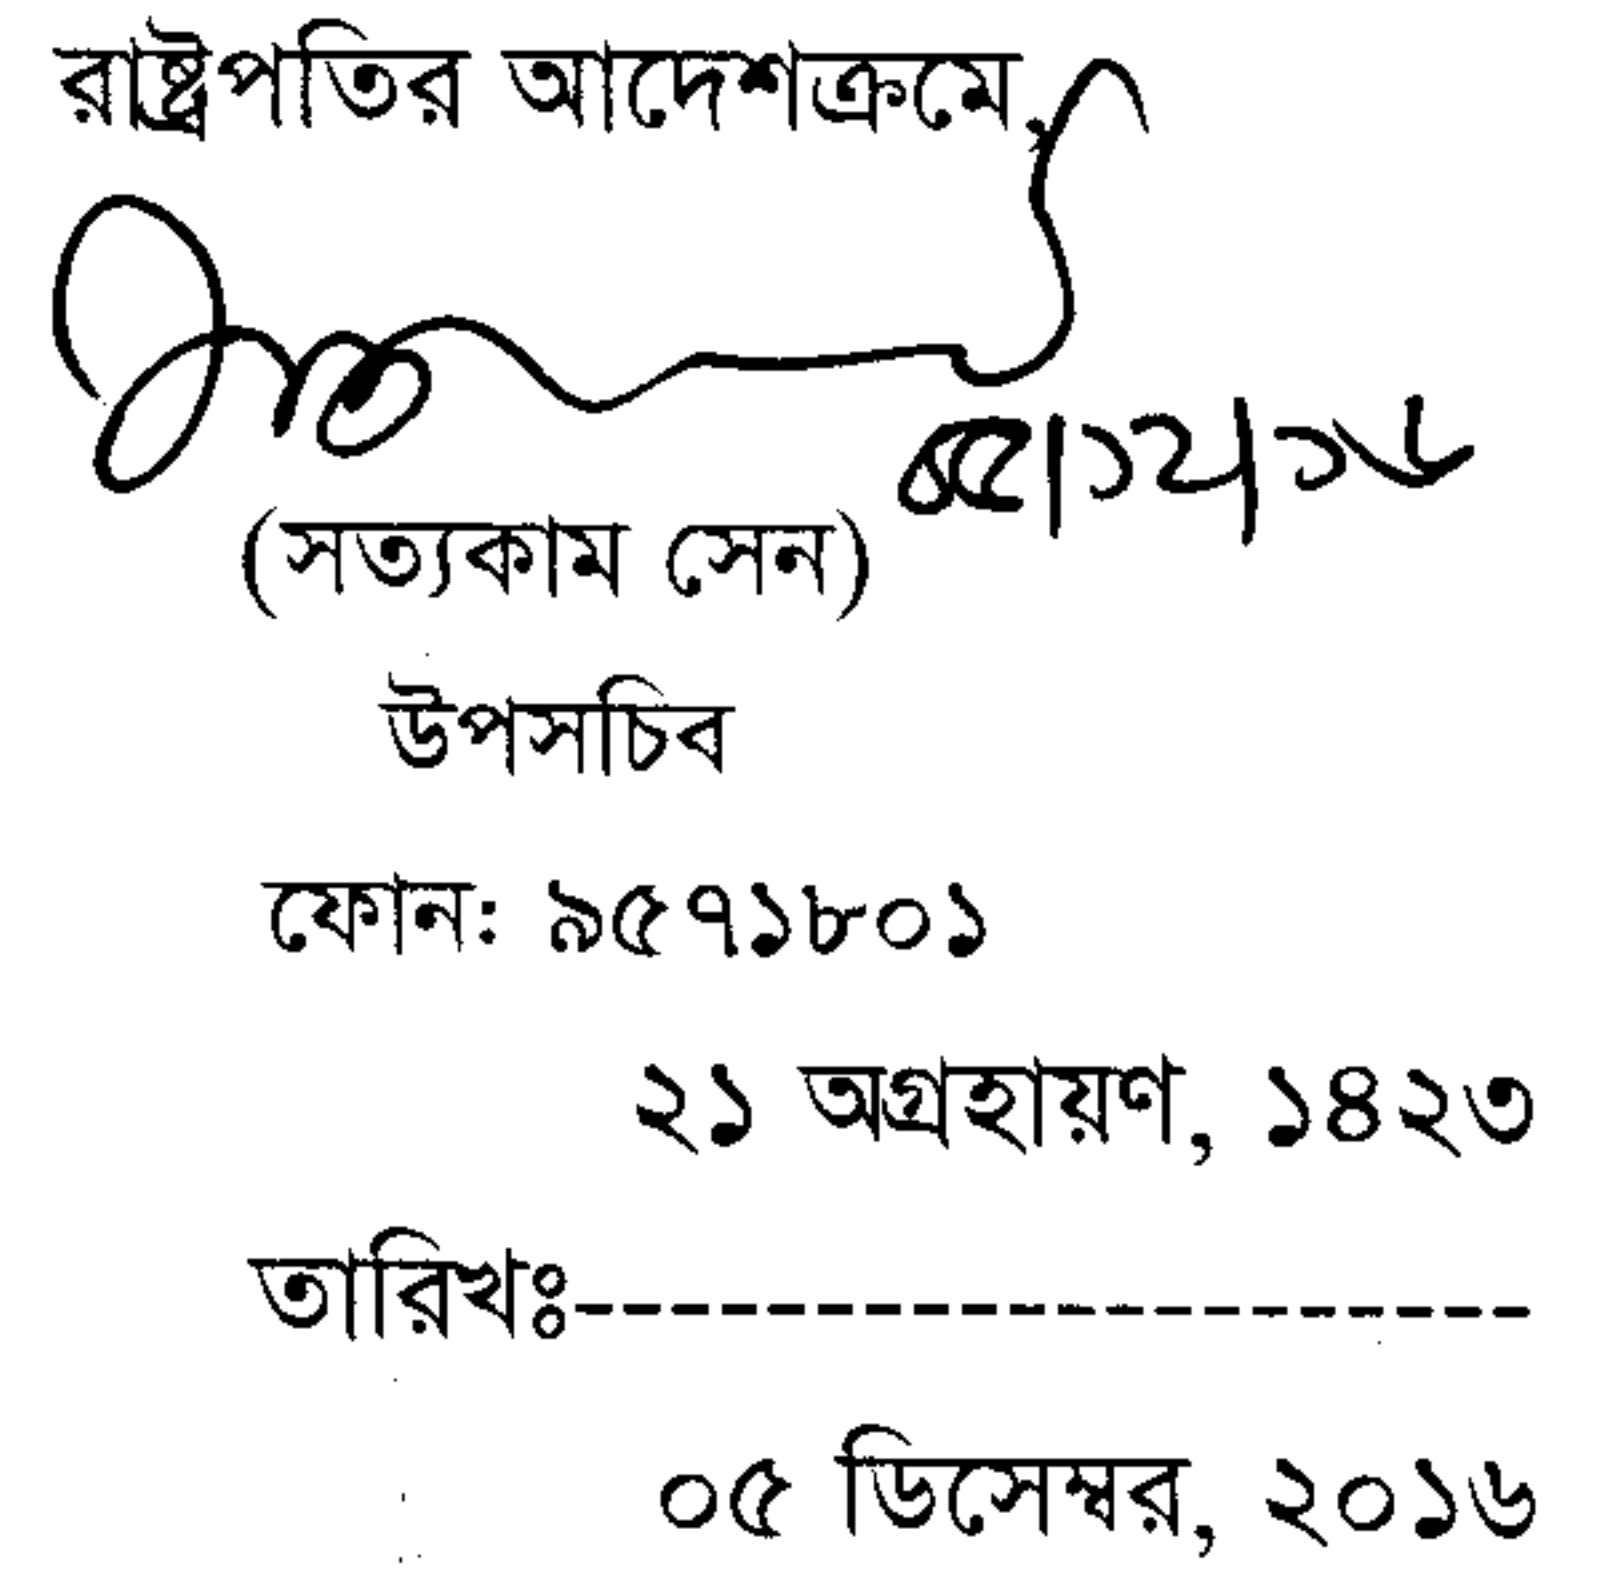 রাষ্ট্রপতির আদেশক্রমে,
০৫/১২/১৬
(সত্যকাম সেন)
উপসচিব
ফোন: ৯৫৭১৮০১
২১ অগ্রহায়ণ, ১৪২৩
তারিখঃ-----------------------------
০৫ ডিসেম্বর, ২০১৬